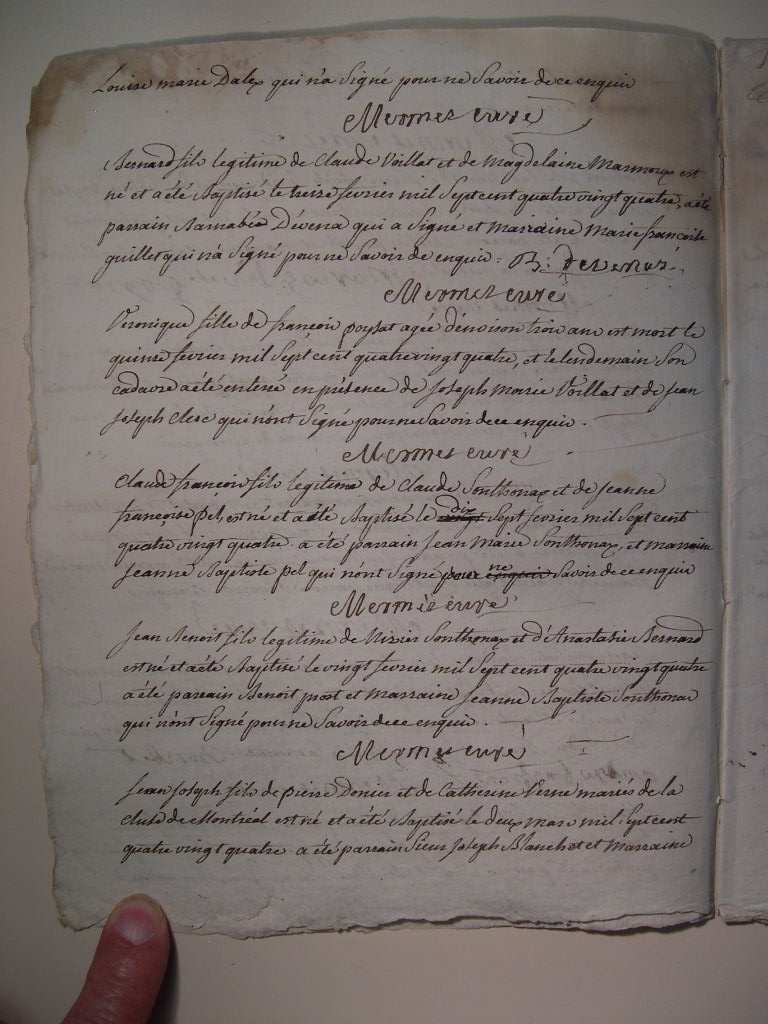 Louise marie Dalex qui n'a Signé pour ne Savoir de ce enquis
Mermet curé
Bernard fils legitime de Claude Voillat et de Magdelaine Marmoux est
né et a été Baptisé le treise fevrier mil Sept cent quatre vingt quatre, a été
parrain Barnabée Dévena qui a Signé et Marraine Marie françoise
guillet qui n'a Signé pour ne Savoir de enquis = B:
Mermet curé
Veronique fille de françois poysat agée d'environ trois ans est mort le
quinse fevrier mil Sept cent quatre vingt quatre, et le lendemain Son
cadavre a été enterré en présence de Joseph Marie Voillat et de Jean
Joseph Clerc qui n'ont Signé pour ne Savoir de ce enquis .
Mermet curé
Claude françois fils legitime de Claude Sonthonax et de Jeanne
françoise pel, est né et a été Baptisé le dix Sept fevrier mil Sept cent
quatre vingt quatre . a été parrain Jean Marie Sonthonax, et marraine
Jeanne Baptiste pel qui n'ont Signé pour ne Savoir de ce enquis
Mermet curé
Jean Benoit fils legitime de Nizier Sonthonax et d'Anastasie Bernard
est né et a été Baptisé le vingt fevrier mil Sept cent quatre vingt quatre
a été parrain Benoit prost et Marraine Jeanne Baptiste Sonthonax
qui n'ont Signé pour ne Savoir de ce enquis .
Mermet curé
Jean Joseph fils de pierre Donier et de Catherine Verne mariés de la
Cluse de Montréal est né et a été Baptisé le deux Mars mil Sept cent
quatre vingt quatre . a été parrain Sieur Joseph Blanchet et Marraine